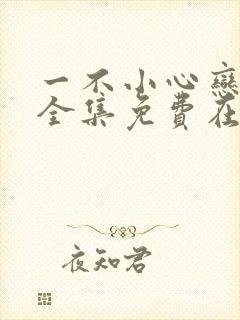 一不小心戀
全集免費在
夜知君